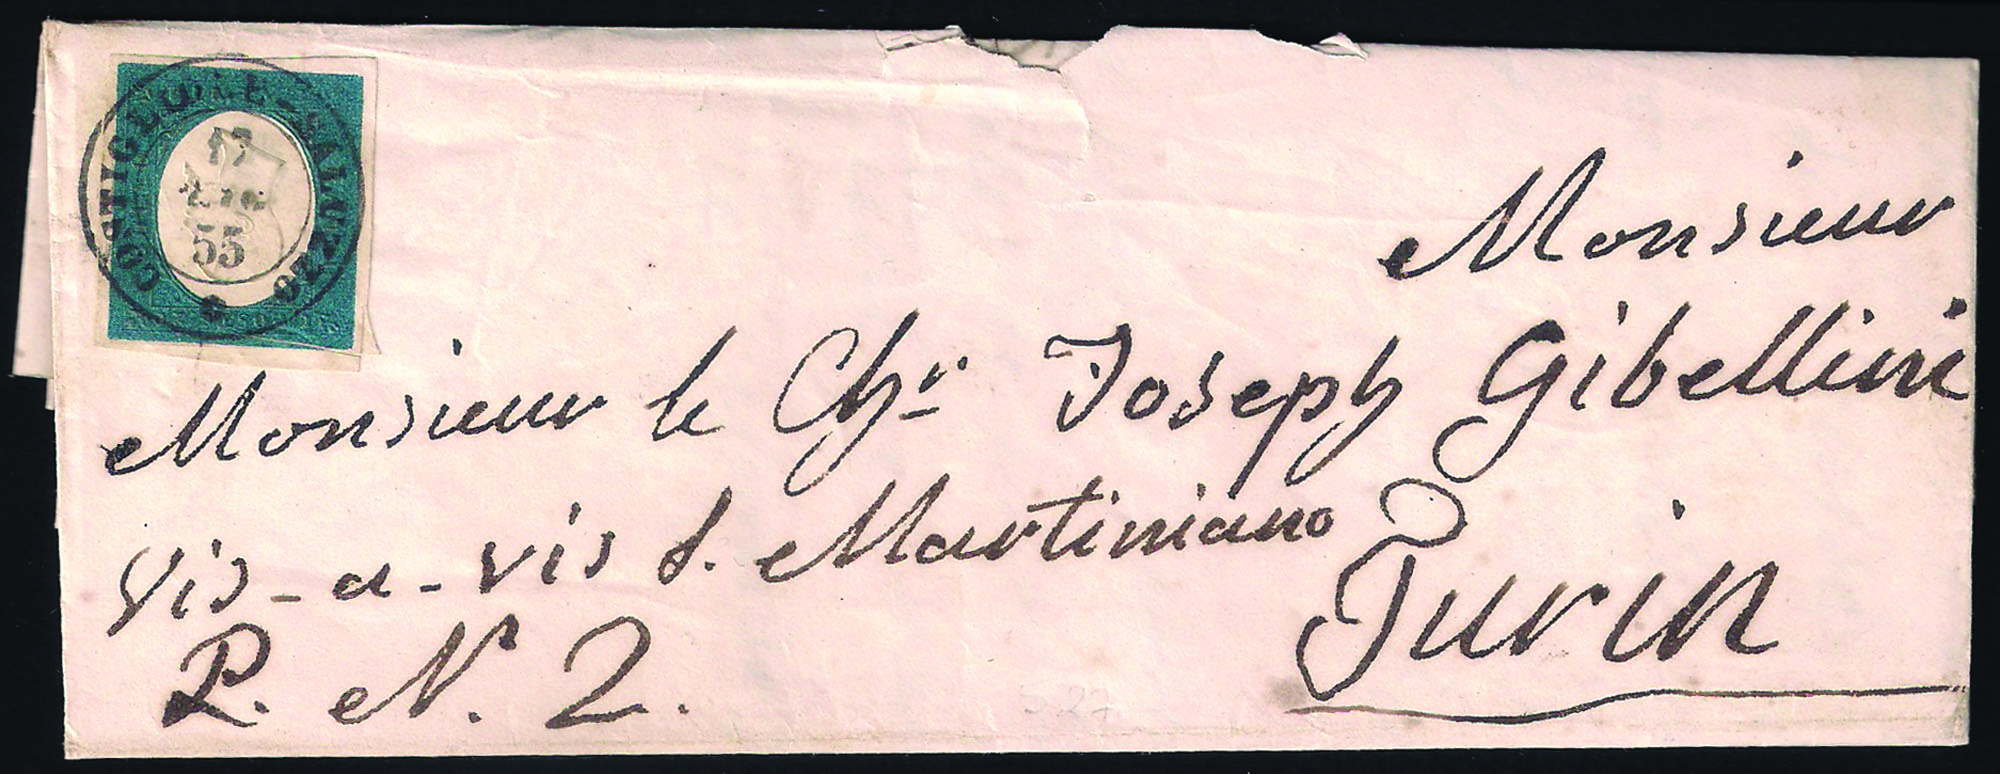 COSTIGLIOLE-SALUZZO
17
55
Monsieur
Monsieur le Chr Joseph Gibellini
vis-a-vis S. Martiniano
Turin
P. N. 2.